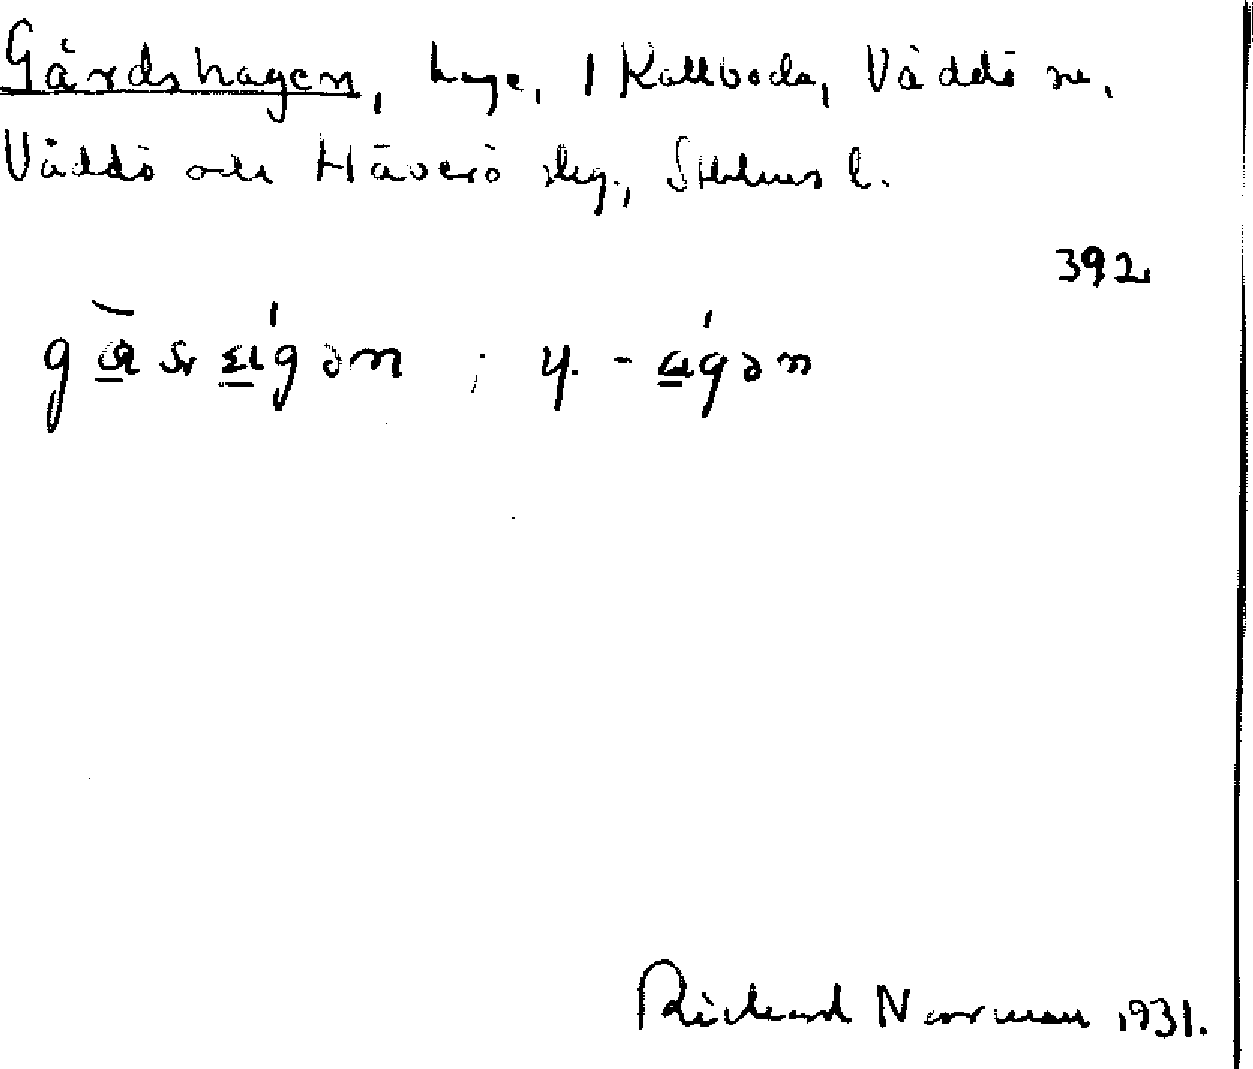 Gårdshagen, hage, 1 Kallboda, Väddö sn,
Väddö och Häverö skg., Sthlms l.
392
Richard Norrman 1931.